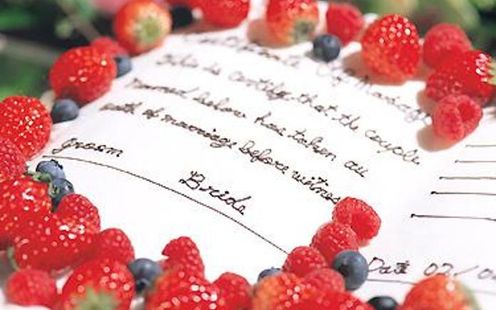 This is certify that the couple
named below has taken an
oath of marriage before witness
groom
Bride
Date 02/0